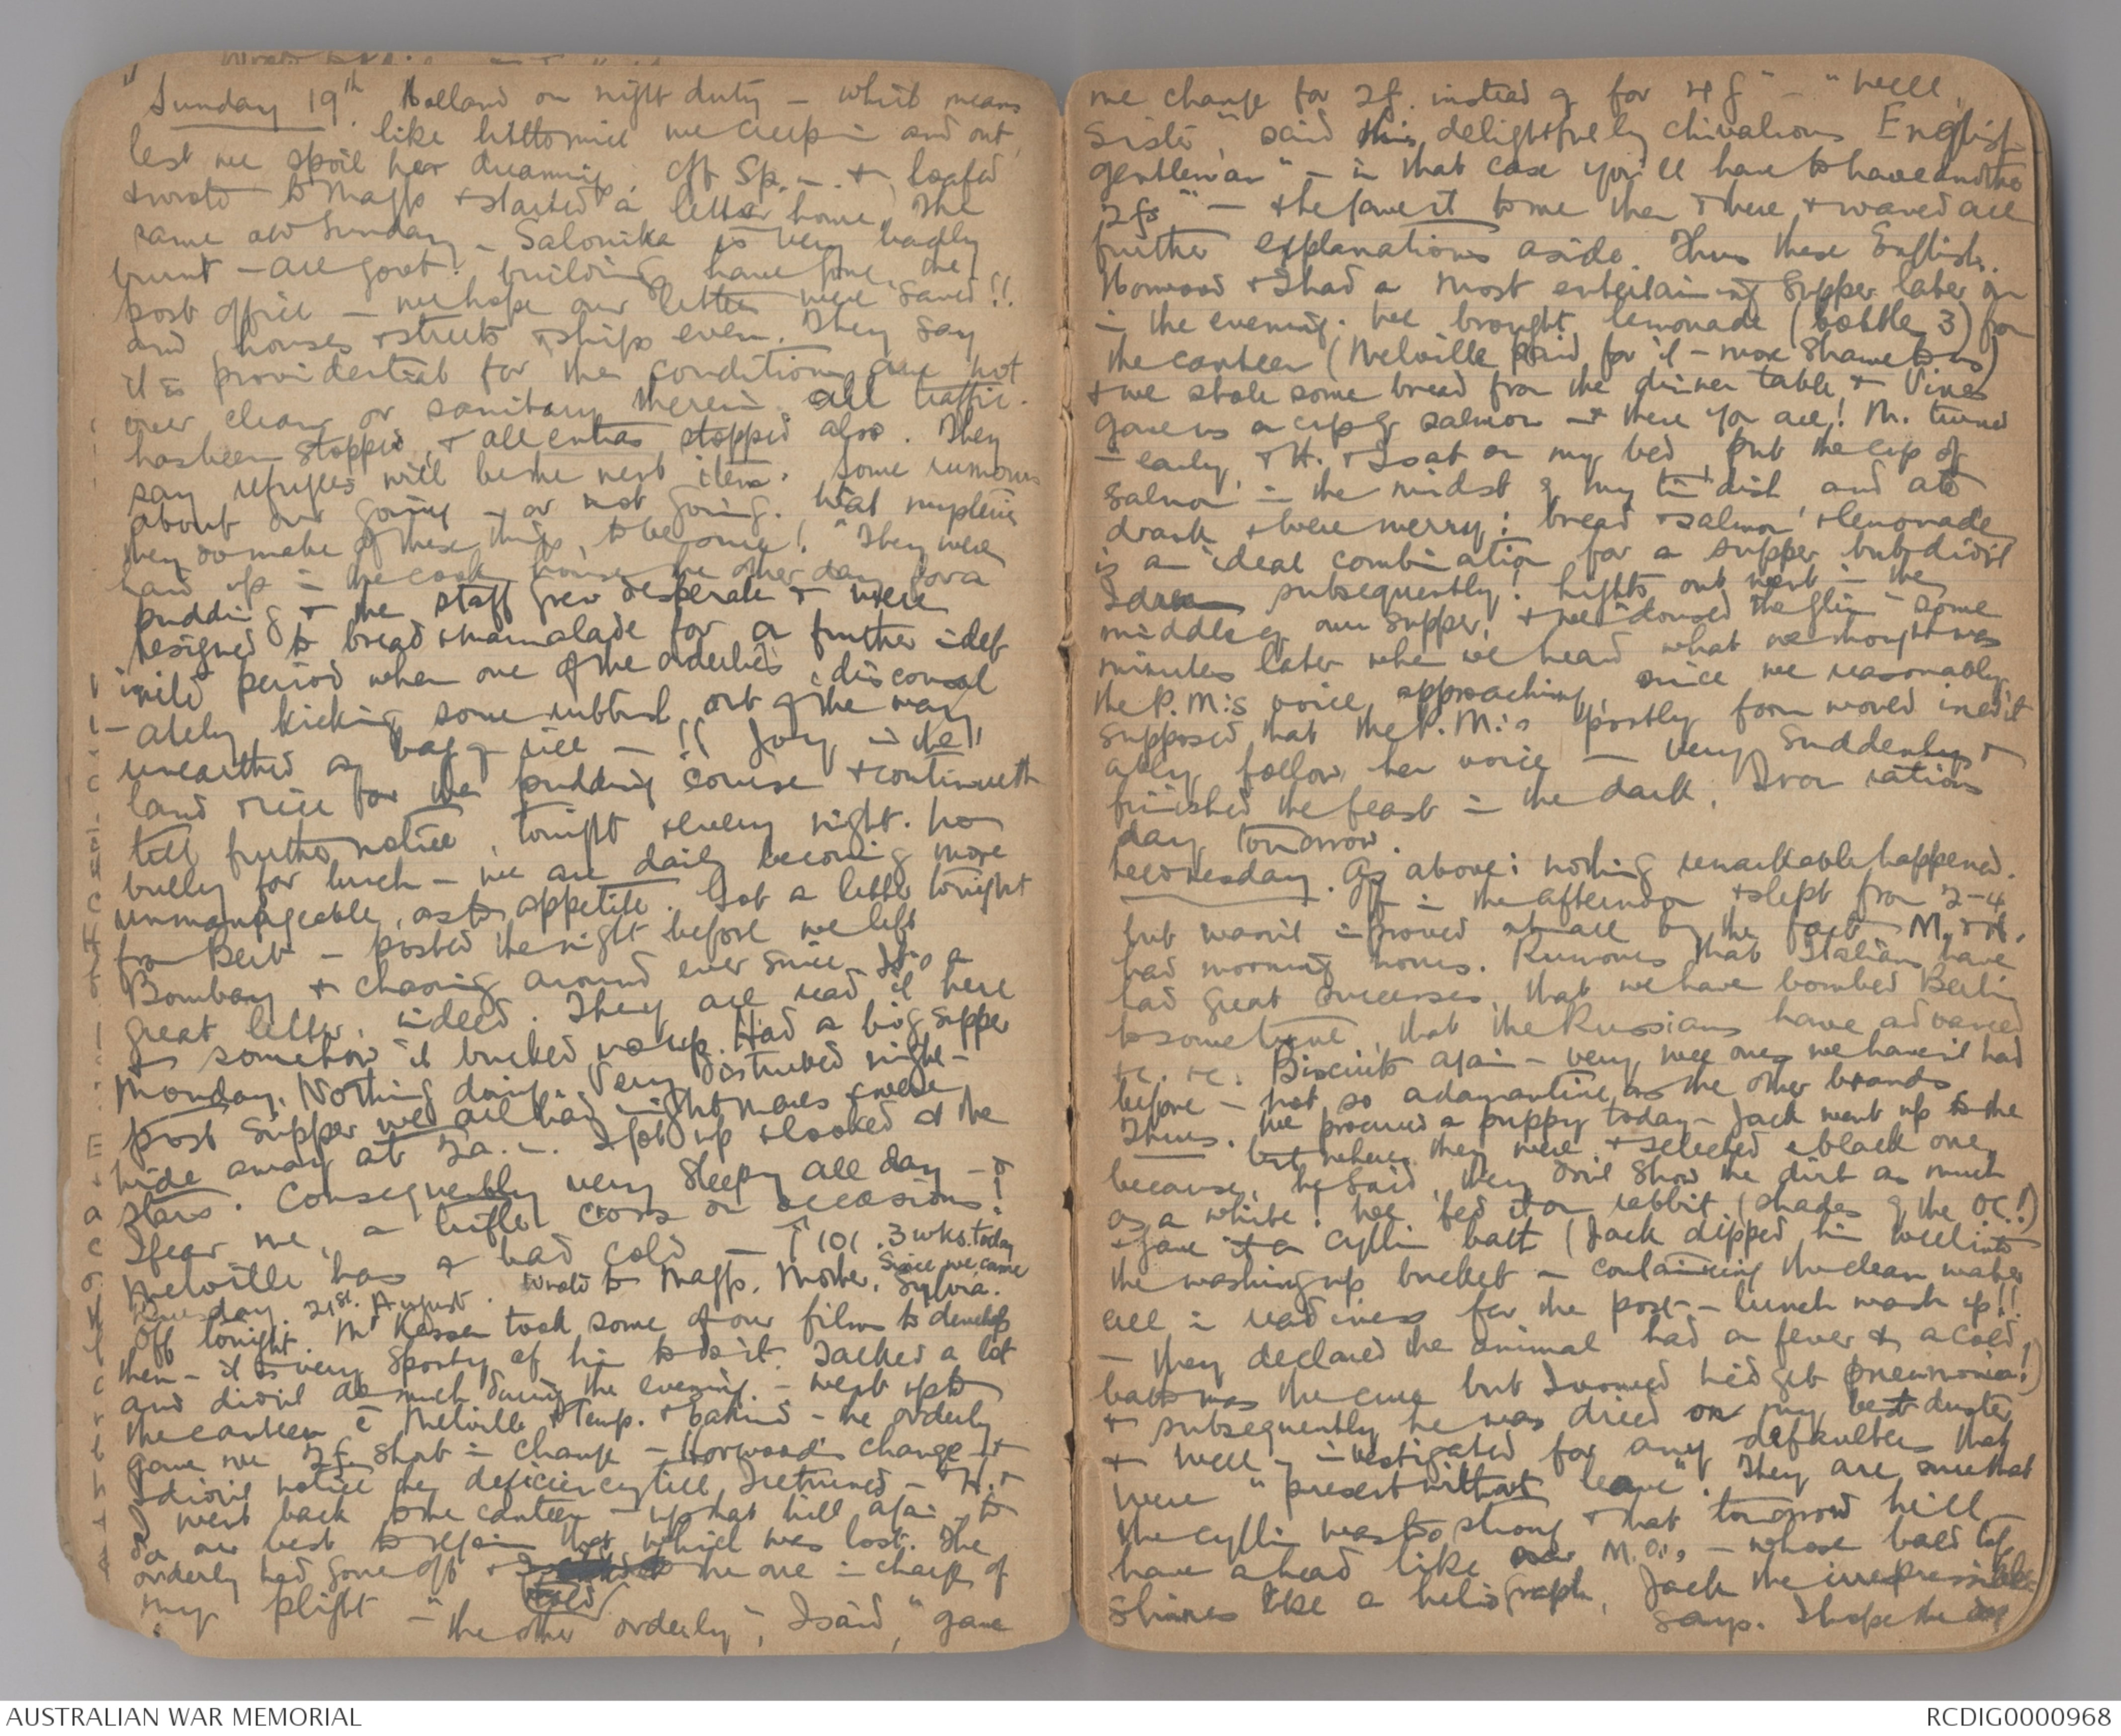 Sunday 19th. Holland on night duty – which means
like little mice we creep in and out,
lest we spoil her dreaming. Off 5 p.m. + loafed
+ wrote to Maggs + started a letter home. The
same old Sunday – Salonika is very badly
burnt – all govt. buildings have gone, the
post office – we hope our letters were saved!!
and houses + streets + ships even. They say
it is providential for the conditions are not
over clean or sanitary therein. All traffic
has been stopped, + all entries stopped also. They
say refugees will be the next item. Some rumours
about our going – or not going. What mysteries
they do make of these things, to be sure! They were
hard up in the cook house the other day for a
pudding + the staff grew desperate + were
resigned to bread + marmalade for a further indef
inite period when one of the orderlies disconsol
ately kicking some rubbish out of the way
unearthed a bag of rice – !! Joy in the
land + rice for the pudding course + continueth
till further notice, tonight + every night. No
bully for lunch – we are daily becoming more
unmanageable, as to appetite. Got a letter tonight
from Bert – posted the night before we left
Bombay + chasing around ever since. It's a
great letter, indeed. They all read it here
+ somehow it bucked us up. Had a big supper
Monday. Nothing doing. Very disturbed night –
post supper we all had nightmares + were
wide awake at 2 a.m. I got up + looked at the
stars. Consequently very sleepy all day – +
I fear me, a trifle cross on occasions!
Melville has a bad cold – ↑ 101. 3 wks. today
since we came
Tuesday. 21st. August. Wrote to Maggs, Mother, Sylvia.
Off tonight. Mr Kassen took some of our films to develop
then – it is very sporty of him to do it. Talked a lot
and didn't do much during the evening – went up to
the canteen c Melville + Temp. + – the orderly
gave me 2f. short in change – Horwood's change – +
I didn't notice the deficiency till I returned – + H. +
I went back to the canteen – up that hill again – to
do our best to regain that which was lost. The
orderly had gone off + I told the one in charge of
my plight – "the other orderly", I said, "gave
me change for 2f. instead of for 4f" – "Well,
Sister," said this delightfully chivalrous English
gentleman "– in that case you'll have to have another
2fs" – + he gave it to me then + there, + waved all
further explanations aside. Thus these English.
Horwood + I had a most entertaining supper later on
in the evening. We brought lemonade (bottle, 3) from
the canteen (Melville paid for it – more shame to us)
+ we stole some bread from the dinner table, + Vines
gave us a cup of salmon – + there you are! M. turned
in early, + H. + I sat on my bed, put the cup of
salmon in the midst of my tin dish and ate
drank + were merry: bread + salmon + lemonade
is an ideal combination for a supper but didn't
I subsequently! Lights out went in the
middle of our supper, + we "doused the glim" some
minutes later when we heard what we thought was
the P.M.'s voice approaching, since we reasonably
supposed that the P.M.'s portly form would inevit
ably follow her voice – very suddenly +
finished the feast in the dark. Iron rations
day tomorrow.
Wednesday. As above: nothing remarkable happened.
Off in the afternoon + slept from 2–4
but wasn't improved at all by the fact – M. + H.
had morning hours. Rumours that Italians have
had great successes, that we have bombed Berlin
to some tune, that the Russians have advanced
+c. +c. Biscuits again – very nice ones we haven't had
before – not so adamantine as the other brands
Thurs. We procured a puppy today – Jack went up to the
where they were + selected a black one
because, he said, they don't show the dirt as much
as a white! We fed it on rabbit (shades of the OC!)
+ gave it a cyllin bath (Jack dipped him well into
the washing up bucket – containing the clean water
all in readiness for the post – lunch wash up!!
– they declared the animal had a fever + a cold,
bath was the cure but I vowed he'd get pneumonia!)
+ subsequently he was dried on my best duster
+ well – investigated for any defaulters that
were "present without leave". They are sure that
the cyllin was too strong + that tomorrow he'll
have a head like our M.O.'s – whose bald top
shines like a heliograph, Jack the irrepressible
says. I hope the dog
AUSTRALIAN WAR MEMORIAL
RCDIG0000968